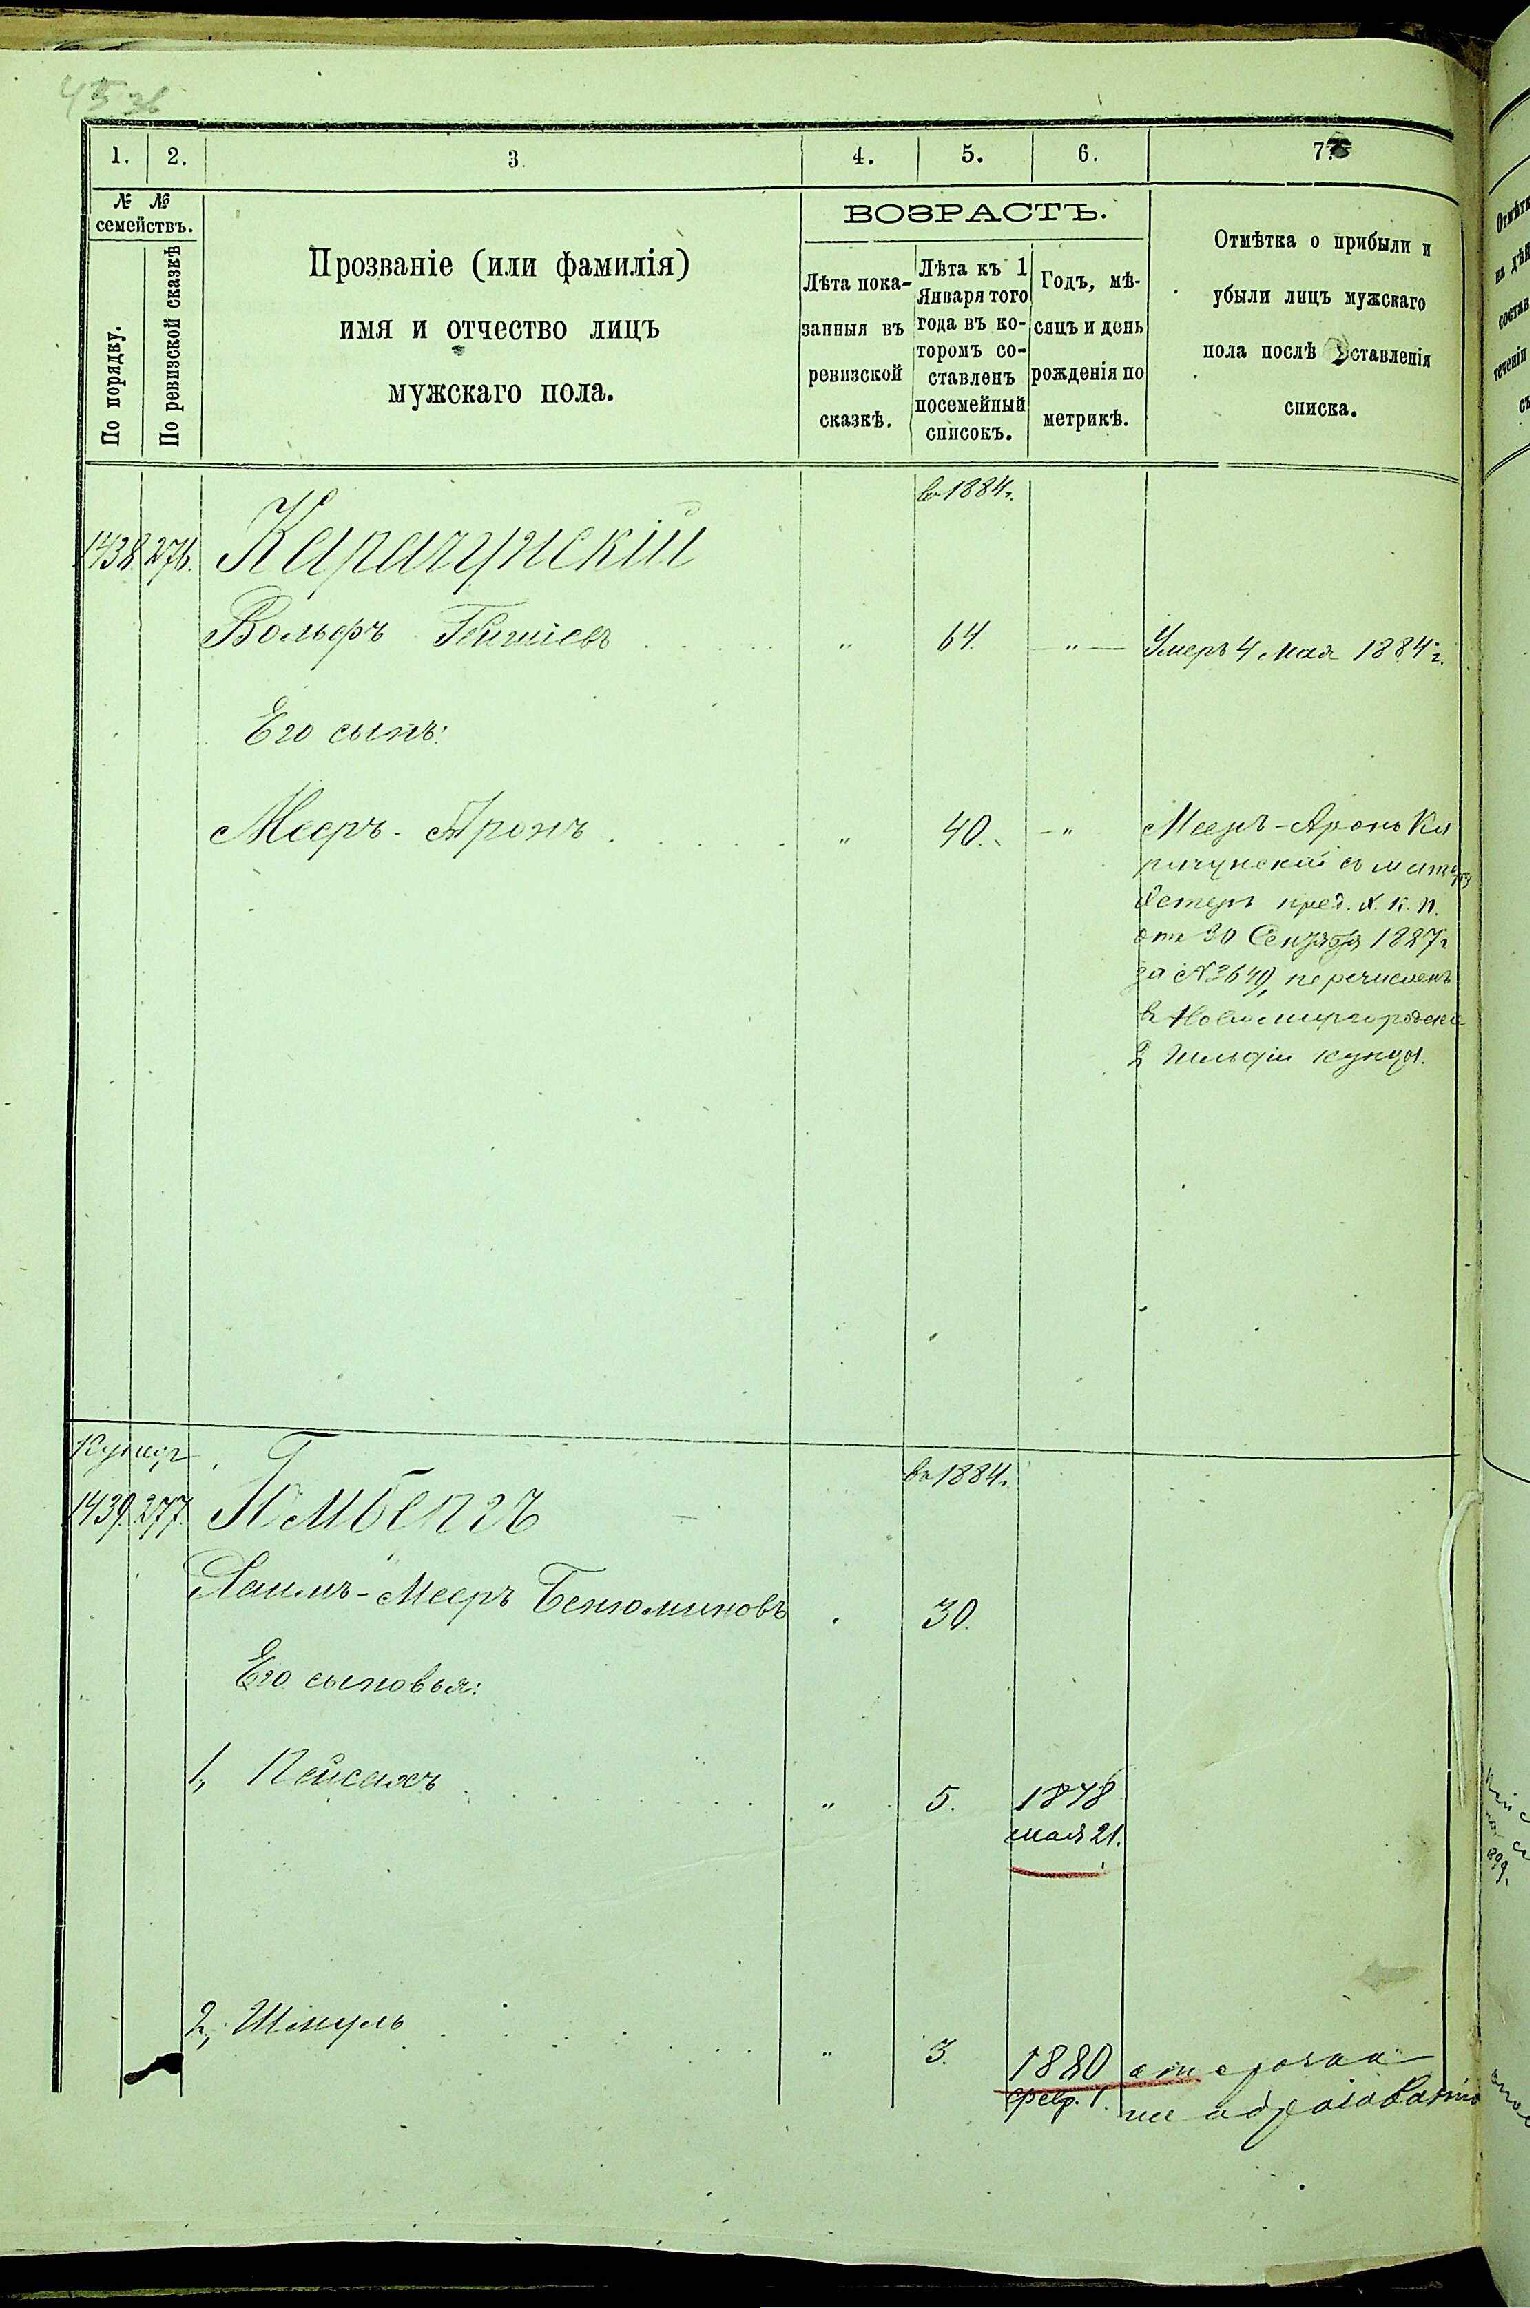 1. 2. 3 4. 5. 6. 7
№ №
семействъ.
По порядку.
По ревизской сказкѣ
Прозваніе (или фамилія)
имя и отчество лицъ
мужскаго пола.
ВОЗРАСТЪ.
Лѣта пока-
занныя въ
ревизской
сказкѣ.
Лѣта къ 1
Января того
года въ ко-
торомъ со-
ставленъ
посемейный
списокъ.
Годъ, мѣ-
сяцъ и день
рожденія по
метрикѣ.
Отмѣтка о прибыли и
убыли лицъ мужскаго
пола послѣ составленія
списка.
въ 1884 г.
1438 276. Карачунскій
Вольфъ " 64. " Умеръ 4 Мая 1884 г.
Его сынъ:
Мееръ-Аронъ " 40. " Мееръ-Аронъ Ка
рачунскій съ
пред. Х. К. П.
отъ 30 Сентября 1887 г
за № 3649, перечисленъ
в Новомиргородскіе
2 Гильдіи купцы.
Купцы
въ 1884 г.
1439. 277. Гомбергъ
Хаимъ-Мееръ Бенюминовъ 30.
Его сыновья:
1, Пейсахъ " 5. 1878
мая 21.
2, Шмуль " 3. 1880 отсрочка
февр. 1. по образованію